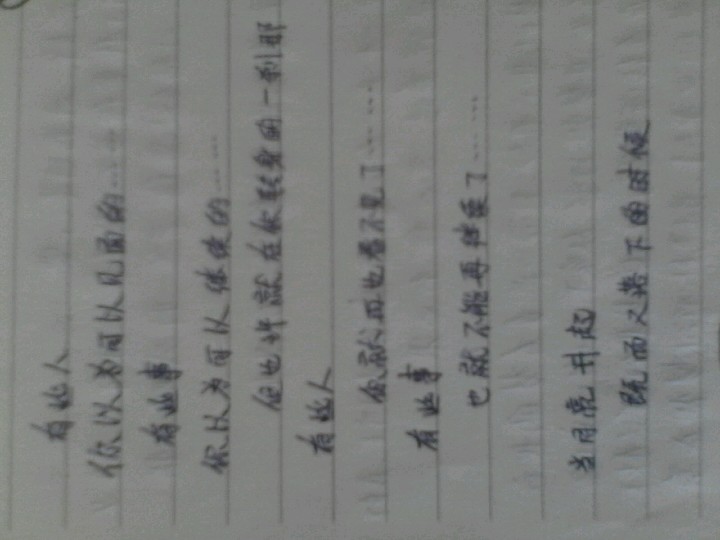 有些人
你以为可以见面的……
有些事
你以为可以继续的……
但也许就在你转身的一刹那
有些人
你就再也看不见了……
有些事
也就不能再继续了……
当月亮升起
既而又落下的时候